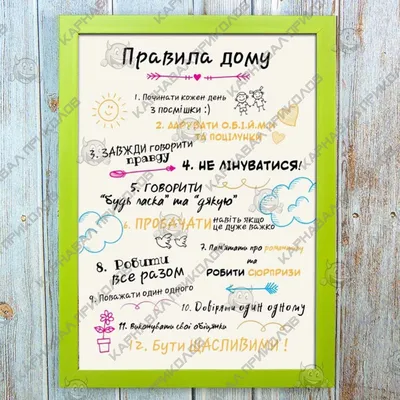 Правила дому
1. Починати кожен день
з посмішки :)
2. ДАРУВАТИ ОБІЙМИ
ТА ПОЦІЛУНКИ
3. ЗАВЖДИ ГОВОРИТИ
правду
4. НЕ ЛІНУВАТИСЯ!
5. ГОВОРИТИ
"будь ласка" та "дякую"
6. ПРОБАЧАТИ навіть якщо
це дуже важко
7. Пам'ятати про романтику
та
РОБИТИ СЮРПРИЗИ
8. Робити
все разом
9. Поважати один одного
10. Довіряти один одному
11. Виконувати свої обіцянки
12. Бути ЩАСЛИВИМИ !
КАРНАВАЛ ПРИКОЛОВ